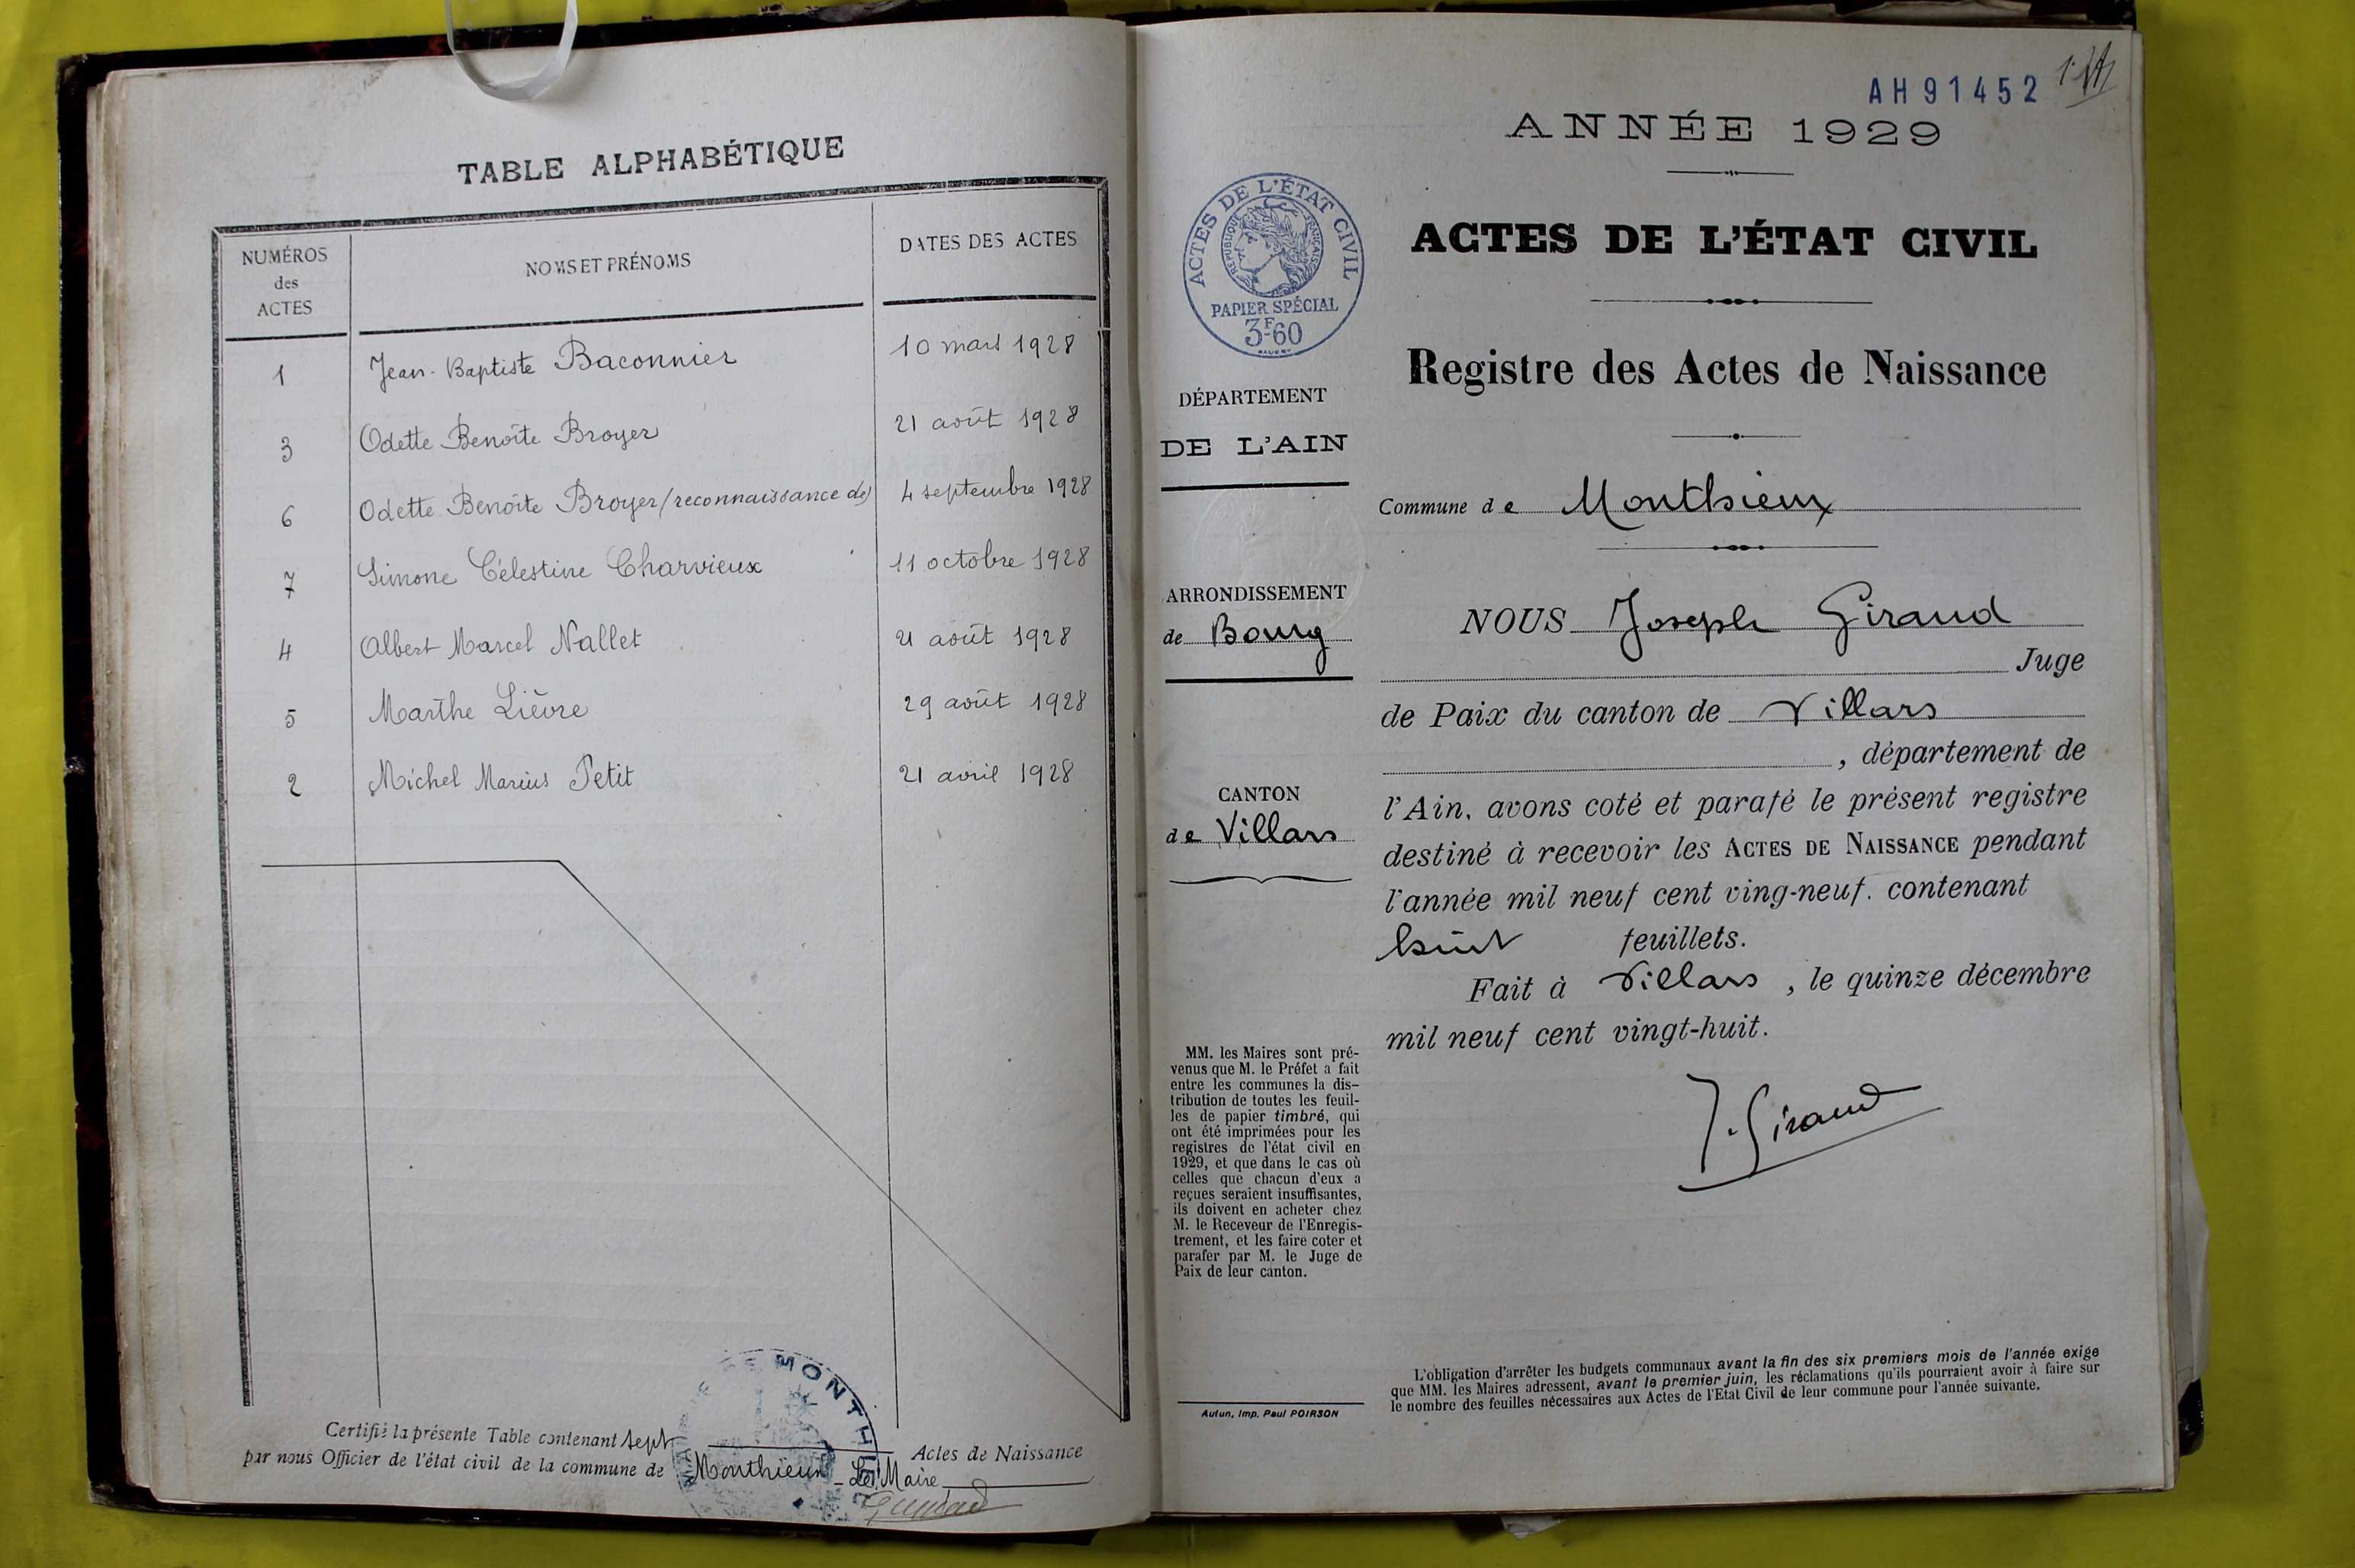 TABLE ALPHABÉTIQUE
NUMÉROS des ACTES
NOMS ET PRÉNOMS
DATES DES ACTES
1 Jean-Baptiste Baconnier 10 mars 1928
3 Odette Benoîte Broyer 21 août 1928
6 Odette Benoîte Broyer (reconnaissance de) 4 septembre 1928
7 Simone Célestine Charvieux 11 octobre 1928
4 Albert Marcel Nallet 21 août 1928
5 Marthe Lièvre 29 août 1928
2 Michel Marius Petit 21 avril 1928
Certifié la présente Table contenant sept Actes de Naissance
par nous Officier de l'état civil de la commune de Monthieux - Le Maire
MONTHIE
AH91452
ANNÉE 1929
ACTES DE L'ÉTAT CIVIL
RÉPUBLIQUE FRANÇAISE
PAPIER SPÉCIAL
3F60
ACTES DE L'ÉTAT CIVIL
Registre des Actes de Naissance
DÉPARTEMENT
DE L'AIN
Commune de Monthieux
ARRONDISSEMENT
de Bourg
CANTON
de Villars
NOUS Joseph Giraud
Juge
de Paix du canton de Villars
, département de
l'Ain, avons coté et parafé le présent registre
destiné à recevoir les ACTES DE NAISSANCE pendant
l'année mil neuf cent ving-neuf. contenant
huit feuillets.
Fait à Villars, le quinze décembre
mil neuf cent vingt-huit.
J. Giraud
MM. les Maires sont pré-
venus que M. le Préfet a fait
entre les communes la dis-
tribution de toutes les feuil-
les de papier timbré, qui
ont été imprimées pour les
registres de l'état civil en
1929, et que dans le cas où
celles que chacun d'eux a
reçues seraient insuffisantes,
ils doivent en acheter chez
M. le Receveur de l'Enregis-
trement, et les faire coter et
parafer par M. le Juge de
Paix de leur canton.
Autun, Imp. Paul POIRSON
L'obligation d'arrêter les budgets communaux avant la fin des six premiers mois de l'année exige
que MM. les Maires adressent, avant le premier juin, les réclamations qu'ils pourraient avoir à faire sur
le nombre des feuilles nécessaires aux Actes de l'Etat Civil de leur commune pour l'année suivante.